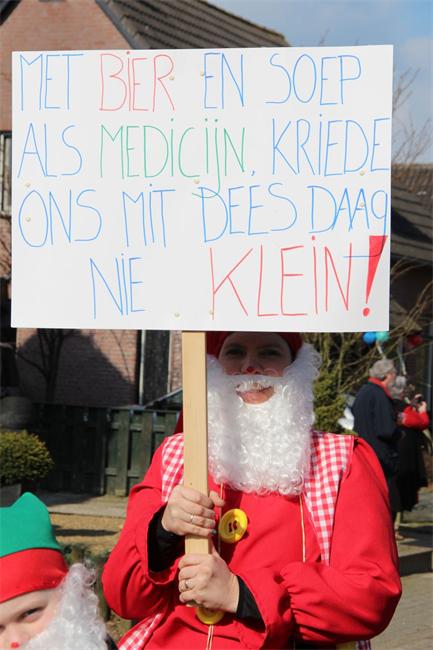 MET BIER EN SOEP
ALS MEDICIJN, KRIEDE
ONS MIT DEES DAAG
NIE KLEIN!